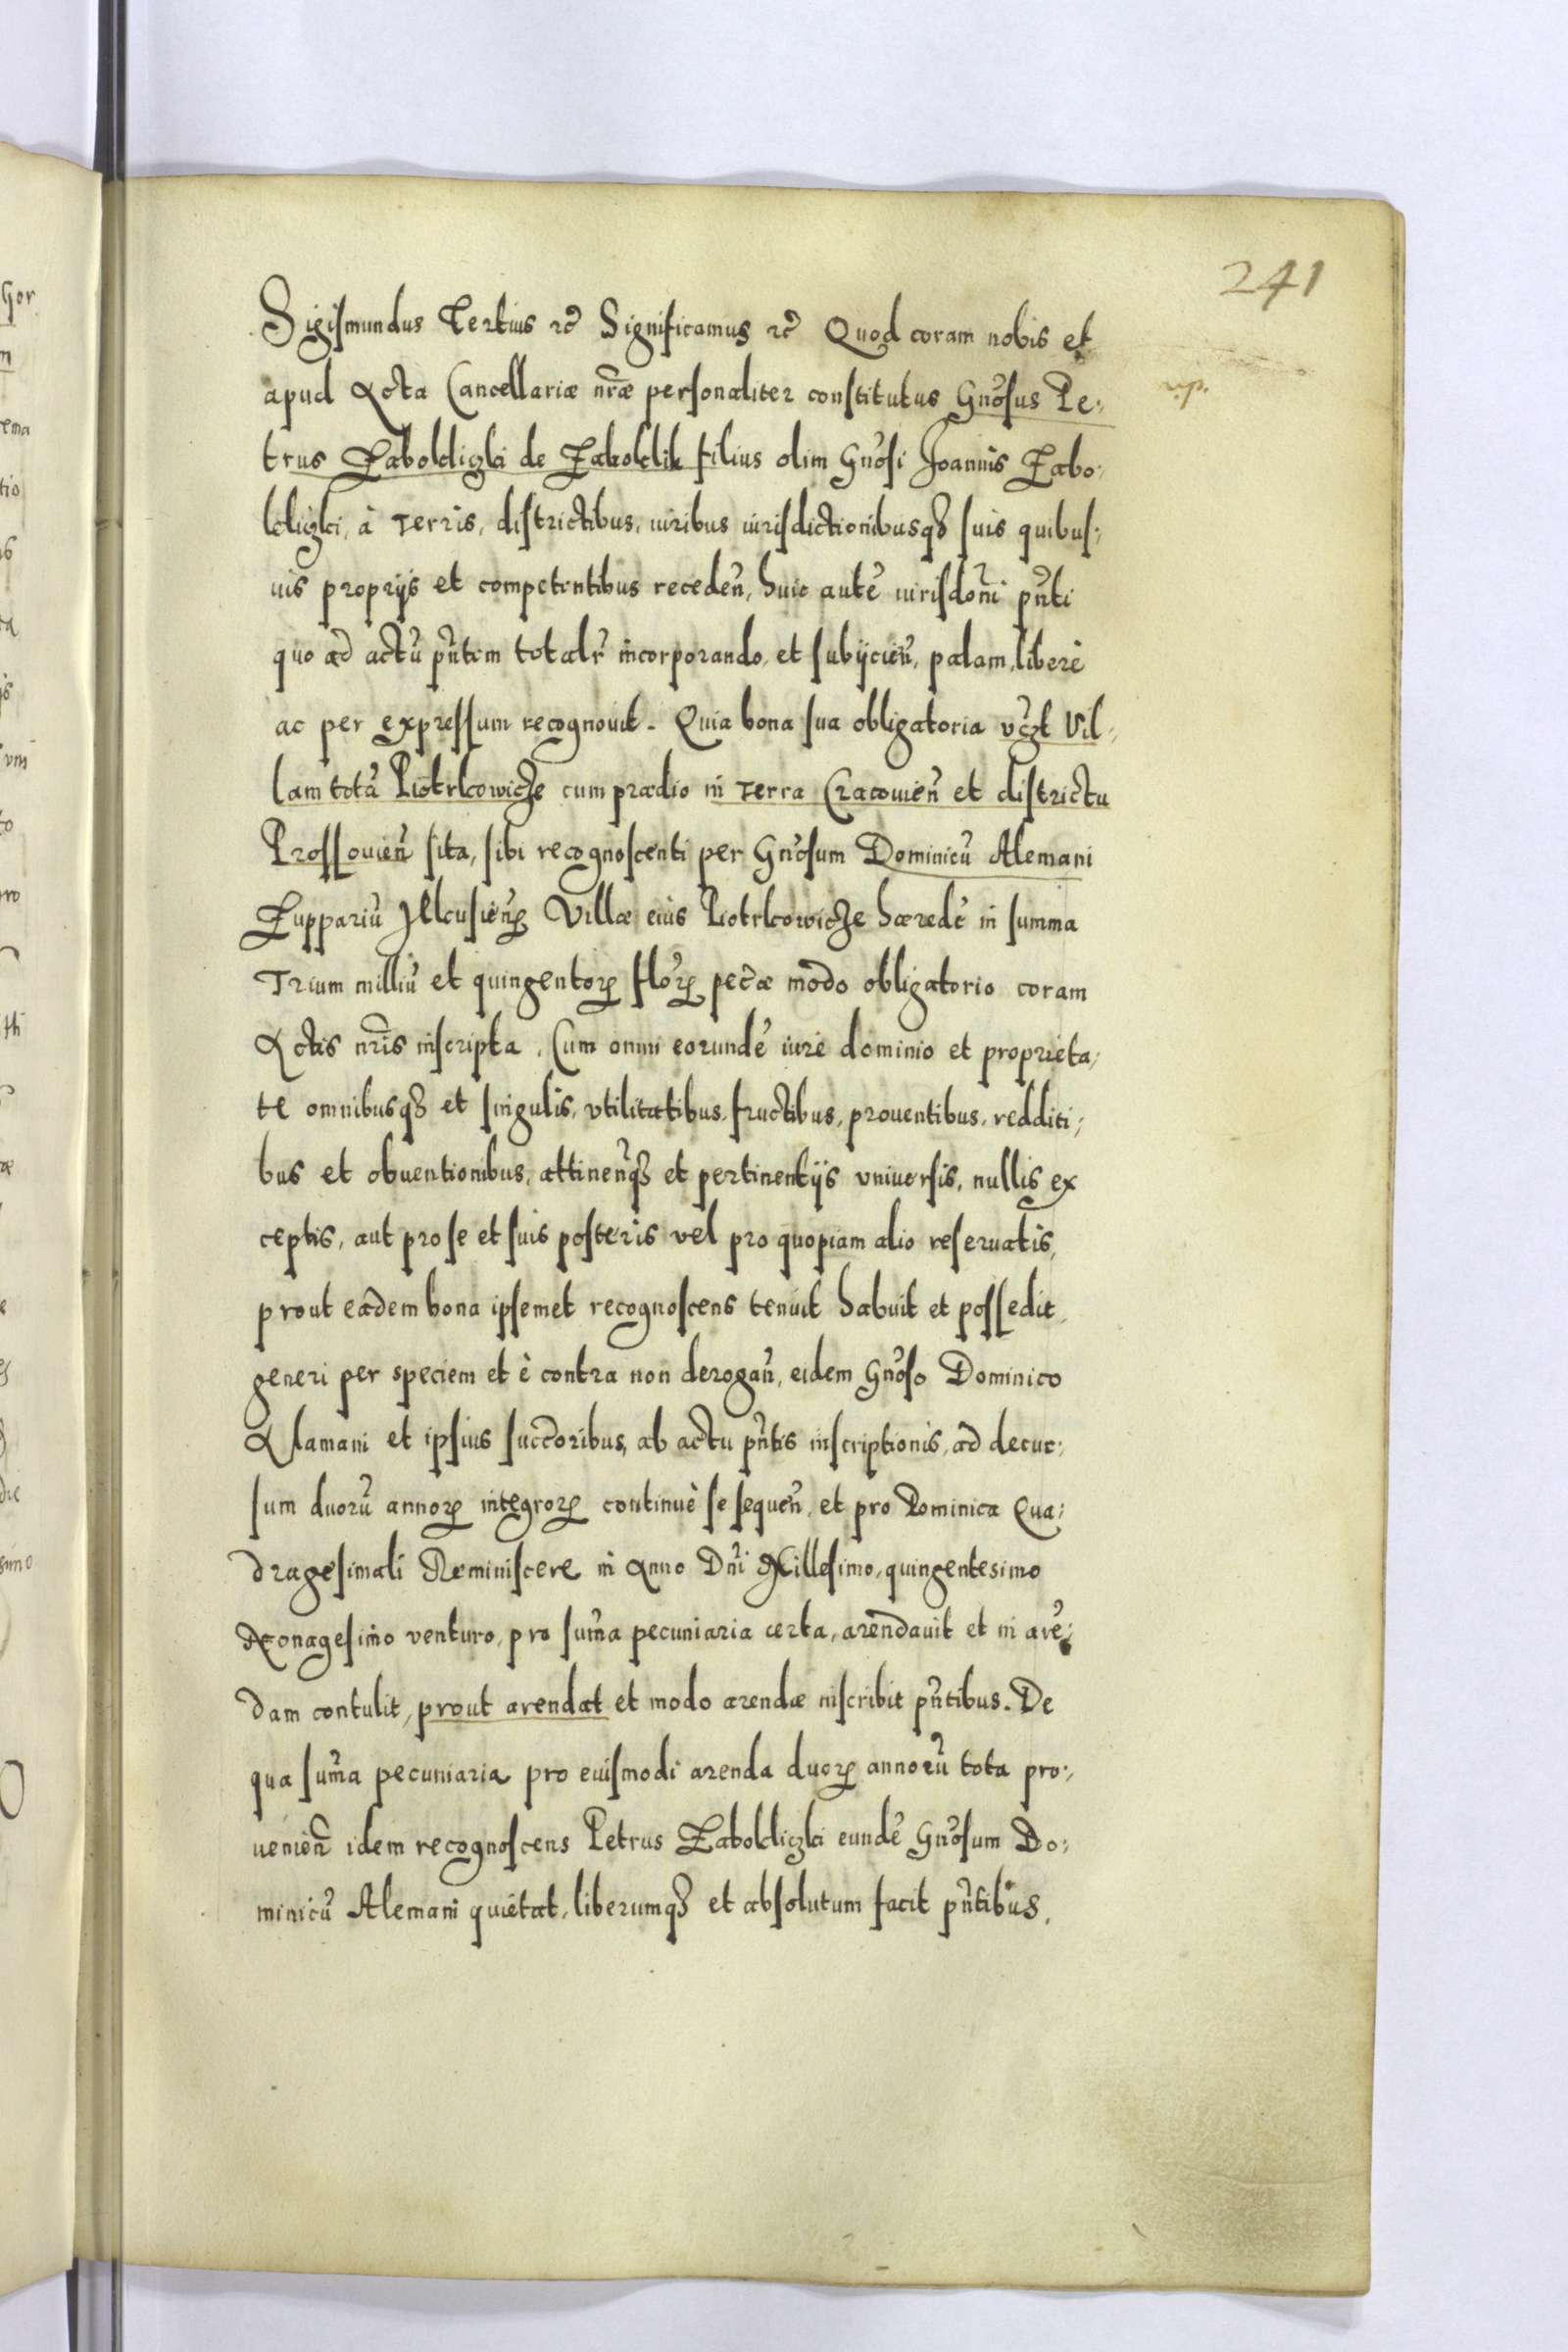 241
Sigismundus Tertius etc̃ Significamus etc̃ Quod coram nobis et
apud Acta Cancellariæ nr̃æ personaliter constitutus Gñosus Pe-
trus Zabokliczki de Zaboklik filius olim Gñosi Joannis Zabo-
kliczki, à Terris, districtibus, iuribus iurisdictionibusq3 suis quibus-
uis proprijs et competentibus receden̄, huic autē iurisdoñi pñti
quo ad actū pñtem totalr̃ incorporando, et subijcien̄, palam, liberè
ac per expressum recognouit. Quia bona sua obligatoria vc̃zt Vil-
lam totā Piotrkowicze cum prædio in Terra Cracouien̄ et districtu
Prossouien̄ sita, sibi recognoscenti per Gñosum Dominicū Alemani
Zuppariū Ilkusien̄ Villæ eius Piotrkowicze hæredē in summa
Trium milliū et quingentorꝝ florꝝ pecc̃æ modo obligatorio coram
Actis nr̃is inscripta. Cum omni eorundē iure dominio et proprieta-
te omnibusq3 et singulis, vtilitatibus, fructibus, prouentibus, redditi-
bus et obuentionibus, attinen̄q3 et pertinentijs vniuersis, nullis ex
ceptis, aut pro se et suis posteris vel pro quopiam alio reseruatis,
prout eadem bona ipsemet recognoscens tenuit habuit et possedit,
generi per speciem et è contra non derogan̄, eidem Gñoso Dominico
Alamani et ipsius succ̃oribus, ab actu pñtis inscriptionis, ad decur-
sum duorū annorꝝ integrorꝝ continuè se sequen̄, et pro Dominica Qua-
dragesimali Reminiscere in Anno Dñi Millesimo, quingentesimo
Nonagesimo venturo, pro sum̄a pecuniaria certa, arendauit et in arē-
dam contulit, prout arendat et modo arendæ inscribit pñtibus. De
qua sum̄a pecuniaria pro euismodi arenda duorꝝ annorū tota pro-
uenien̄ idem recognoscens Petrus Zabokliczki eundē Gñosum Do-
minicū Alemani quietat, liberumq3 et absolutum facit pñtibus.